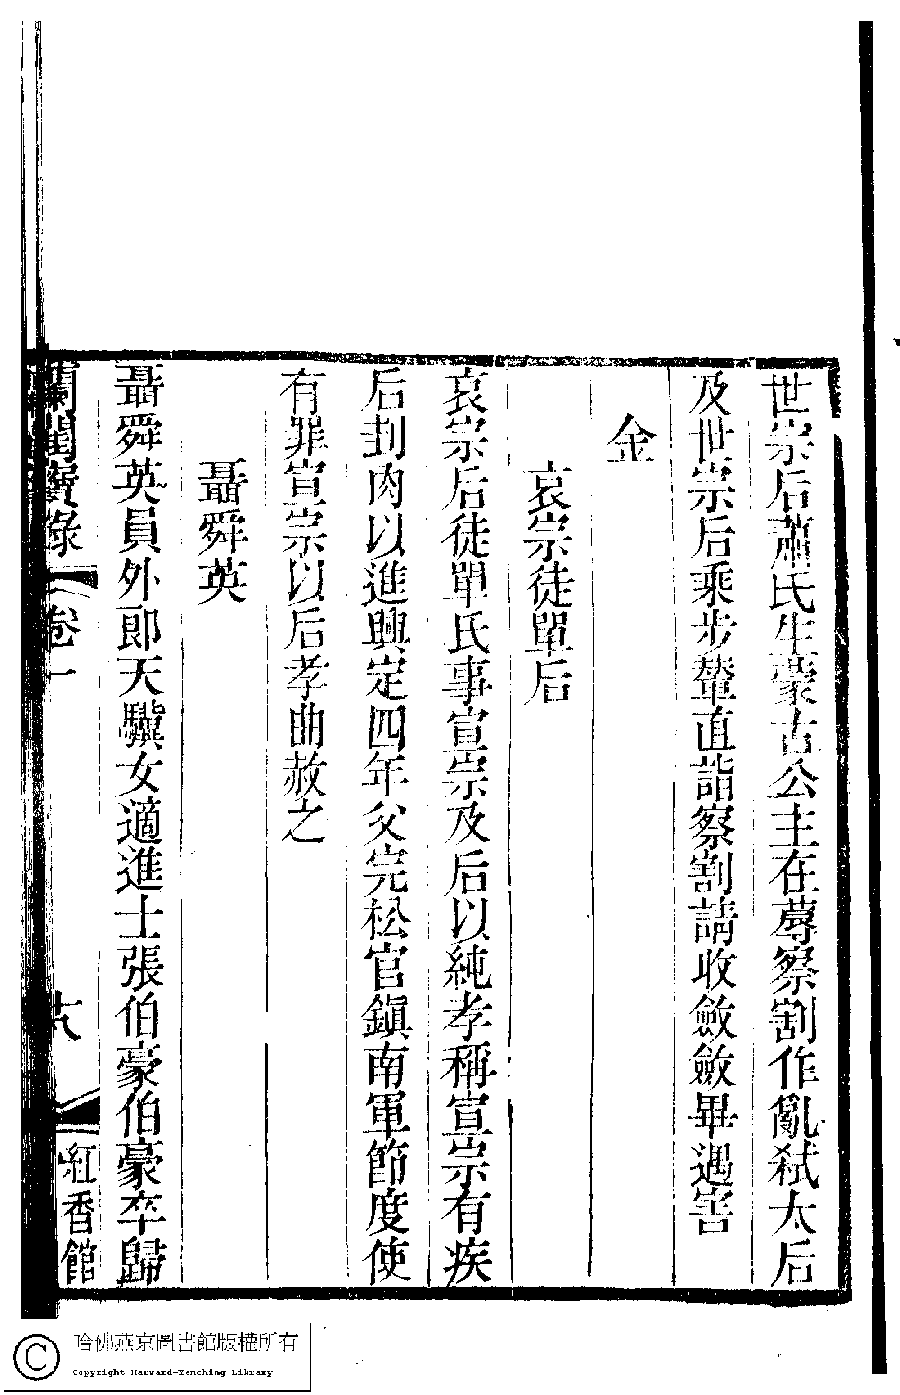 世宗后蕭氏生蒙古公主在蓐察割作亂弑太后
及世宗后乘步輦直詣察割請收斂斂畢遇害
金
哀宗徒單后
哀宗后徒單氏事宣宗及后以純孝稱宣宗有疾
后刲肉以進興定四年父完松官鎮南軍節度使
有罪宣宗以后孝曲赦之
聶舜英
聶舜英員外郎天驥女適進士張伯豪伯豪卒歸
蘭閨寶錄 卷一 十八 紅香館
哈佛燕京圖書館版權所有
Copyright Harvard-Yenching Library